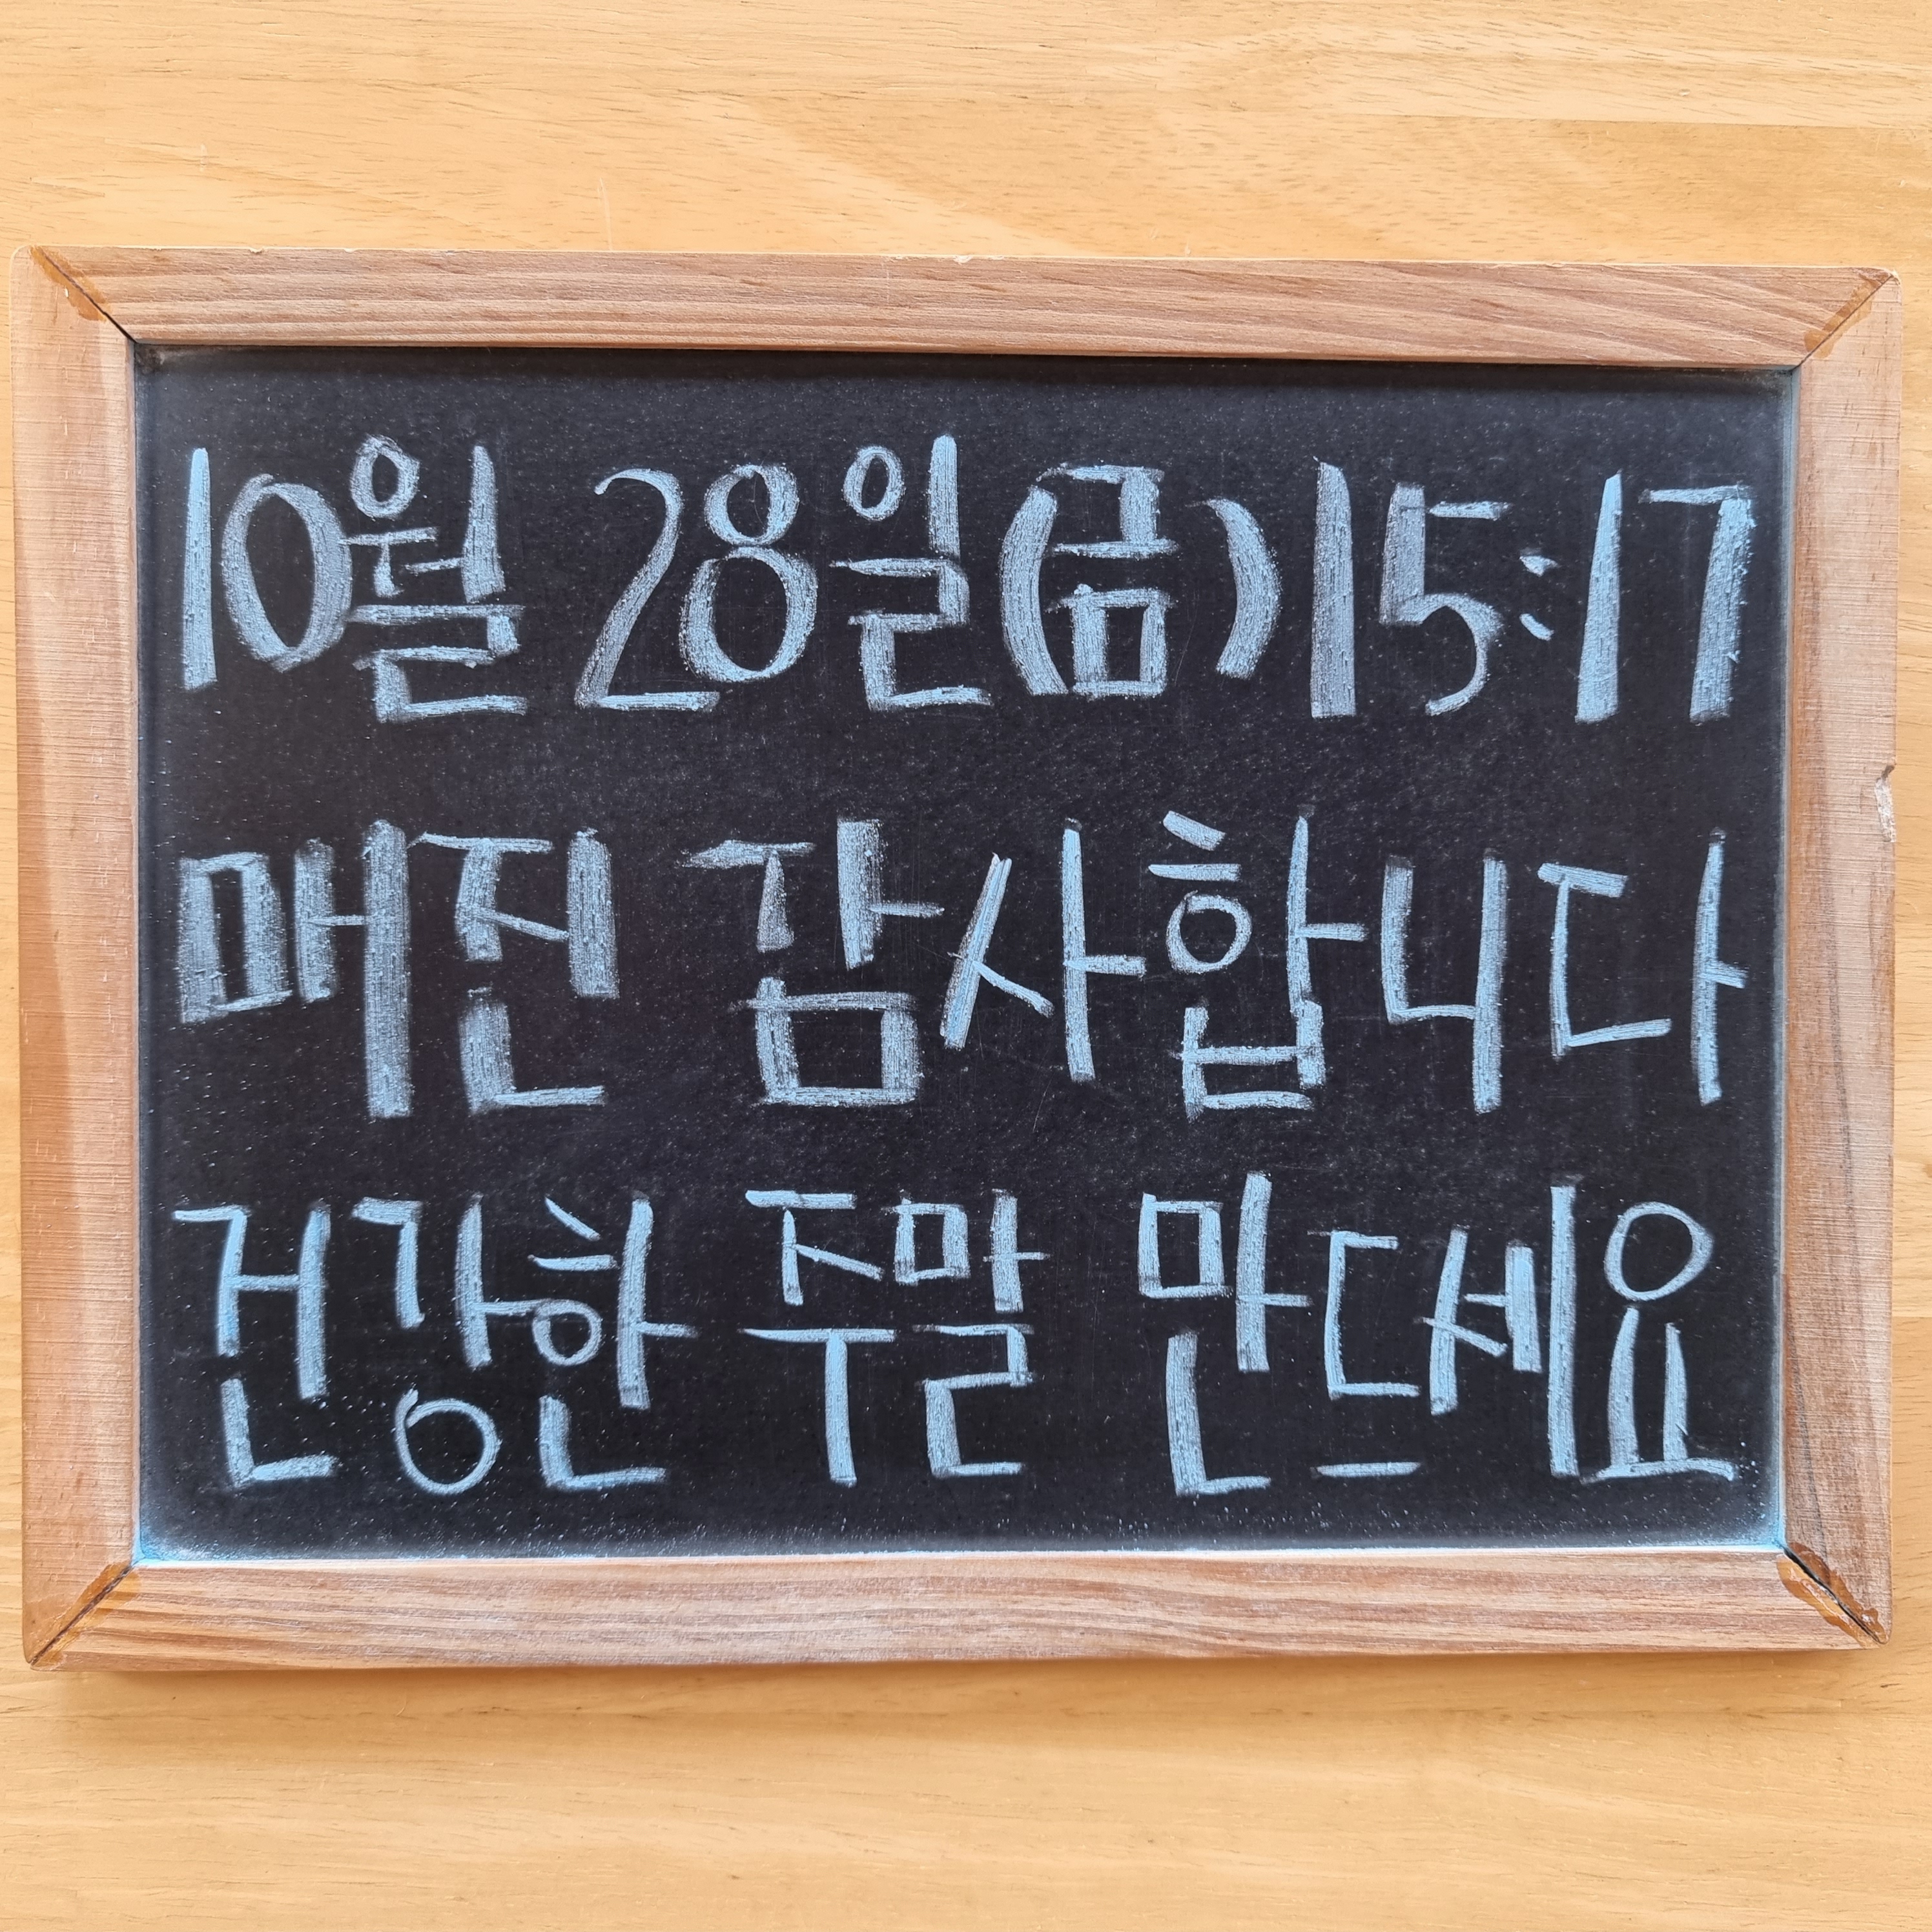 10월 28일(금) 15:17
매진 감사합니다
건강한 주말 만드세요